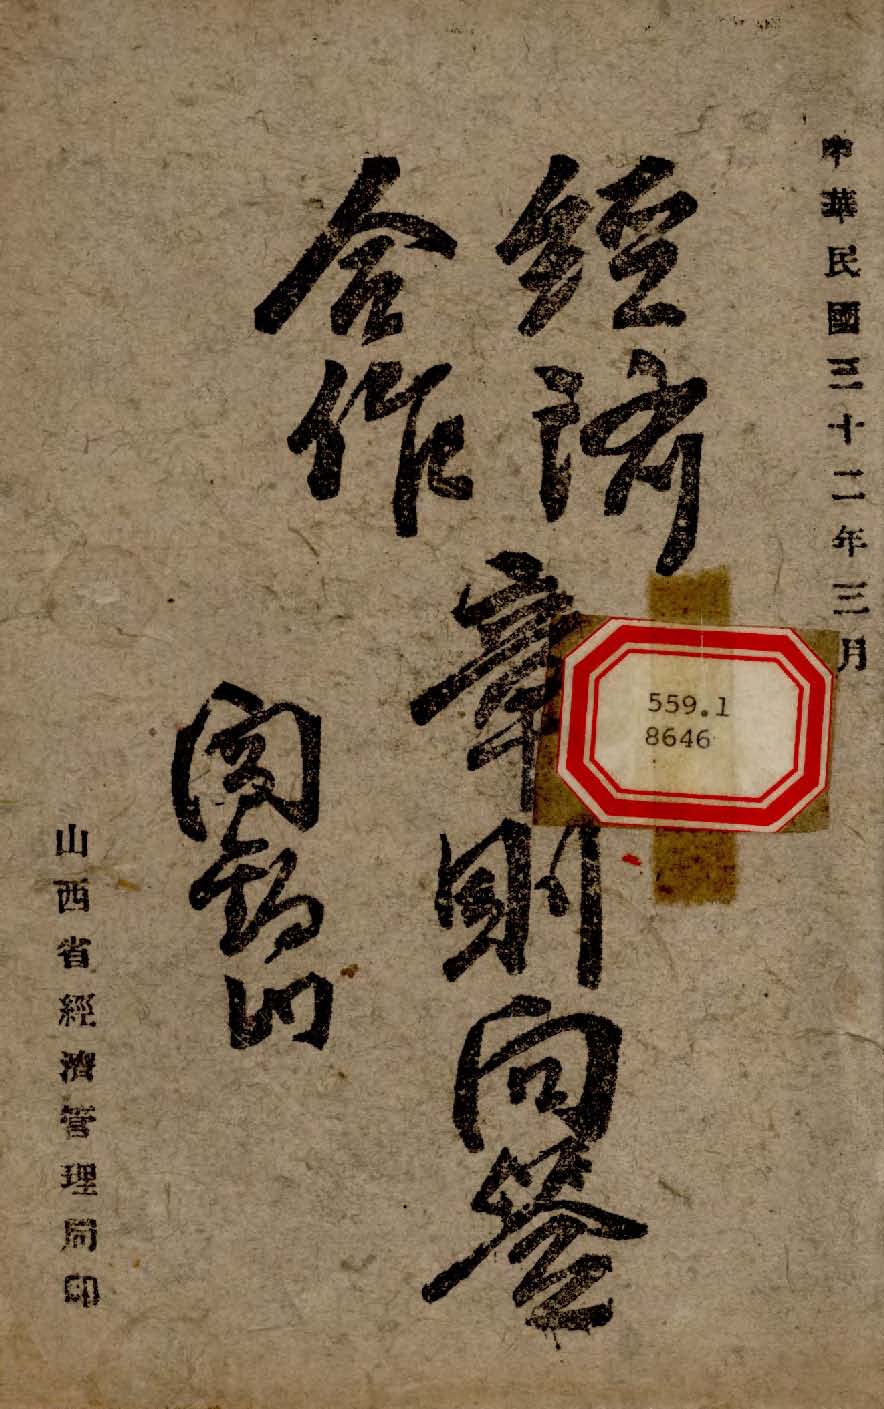 中華民國三十二年三月
經濟
合作
章則問答
閻錫山
559.1
8646
山西省經濟管理局印